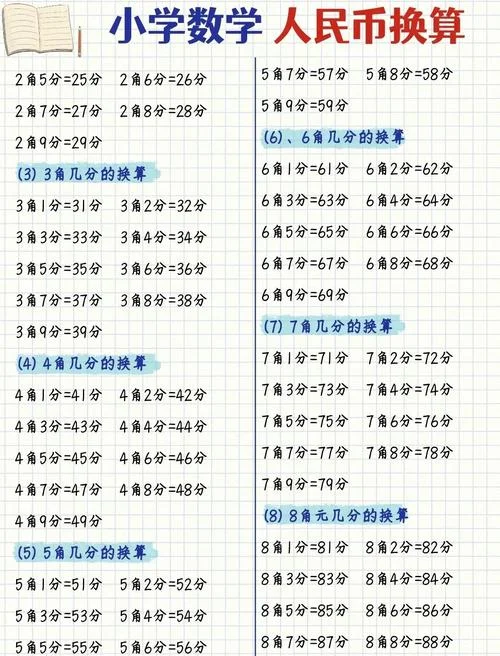 小学数学 人民币换算
2角5分=25分 2角6分=26分
2角7分=27分 2角8分=28分
2角9分=29分
(3) 3角几分的换算
3角1分=31分 3角2分=32分
3角3分=33分 3角4分=34分
3角5分=35分 3角6分=36分
3角7分=37分 3角8分=38分
3角9分=39分
(4) 4角几分的换算
4角1分=41分 4角2分=42分
4角3分=43分 4角4分=44分
4角5分=45分 4角6分=46分
4角7分=47分 4角8分=48分
4角9分=49分
(5) 5角几分的换算
5角1分=51分 5角2分=52分
5角3分=53分 5角4分=54分
5角5分=55分 5角6分=56分
5角7分=57分 5角8分=58分
5角9分=59分
(6)、6角几分的换算
6角1分=61分 6角2分=62分
6角3分=63分 6角4分=64分
6角5分=65分 6角6分=66分
6角7分=67分 6角8分=68分
6角9分=69分
(7) 7角几分的换算
7角1分=71分 7角2分=72分
7角3分=73分 7角4分=74分
7角5分=75分 7角6分=76分
7角7分=77分 7角8分=78分
7角9分=79分
(8) 8角元几分的换算
8角1分=81分 8角2分=82分
8角3分=83分 8角4分=84分
8角5分=85分 8角6分=86分
8角7分=87分 8角8分=88分